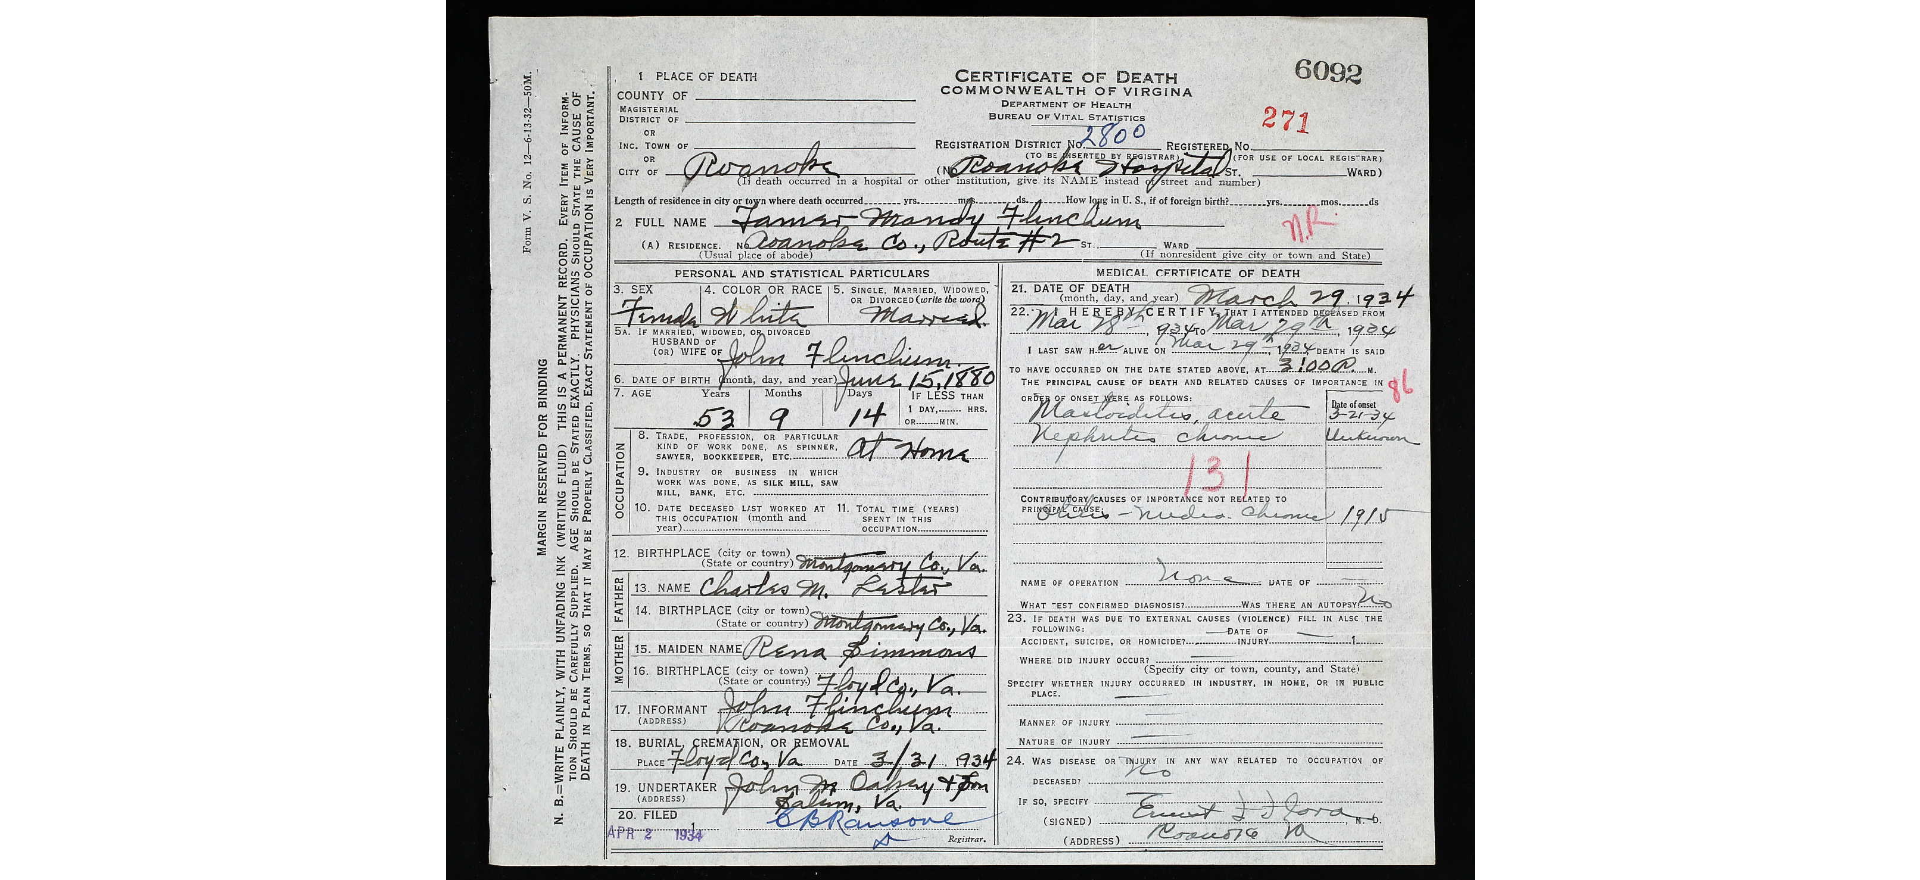 Form V. S. No. 12—6-13-32—50M.
MARGIN RESERVED FOR BINDING
N. B.—WRITE PLAINLY, WITH UNFADING INK (WRITING FLUID) THIS IS A PERMANENT RECORD. EVERY ITEM OF INFORM-
TION SHOULD BE CAREFULLY SUPPLIED. AGE SHOULD BE STATED EXACTLY. PHYSICIANS SHOULD STATE THE CAUSE OF
DEATH IN PLAIN TERMS, SO THAT IT MAY BE PROPERLY CLASSIFIED, EXACT STATEMENT OF OCCUPATION IS VERY IMPORTANT.
6092
CERTIFICATE OF DEATH
COMMONWEALTH OF VIRGINA
DEPARTMENT OF HEALTH
BUREAU OF VITAL STATISTICS
271
1 PLACE OF DEATH
COUNTY OF
MAGISTERIAL
DISTRICT OF
OR
INC. TOWN OF
OR
CITY OF Roanoke
REGISTRATION DISTRICT No. 2800 REGISTERED No.
(TO BE INSERTED BY REGISTRAR) (FOR USE OF LOCAL REGISTRAR)
(No. Roanoke Hospital ST. WARD)
(If death occurred in a hospital or other institution, give its NAME instead of street and number)
Length of residence in city or town where death occurred yrs. mos. ds. How long in U. S., if of foreign birth? yrs. mos. ds
2 FULL NAME Tamer Mandy Flinchum
N.R.
(A) RESIDENCE. No. Roanoke Co., Route #2 ST. WARD
(Usual place of abode) (If nonresident give city or town and State)
PERSONAL AND STATISTICAL PARTICULARS
3. SEX 4. COLOR OR RACE 5. SINGLE, MARRIED, WIDOWED,
OR DIVORCED (write the word)
Female White Married
5A. IF MARRIED, WIDOWED, OR DIVORCED
HUSBAND OF
(OR) WIFE OF John Flinchum
6. DATE OF BIRTH (month, day, and year) June 15, 1880
7. AGE Years Months Days IF LESS THAN
1 DAY, HRS.
OR MIN.
53 9 14
OCCUPATION
8. TRADE, PROFESSION, OR PARTICULAR
KIND OF WORK DONE, AS SPINNER,
SAWYER, BOOKKEEPER, ETC. At Home
9. INDUSTRY OR BUSINESS IN WHICH
WORK WAS DONE, AS SILK MILL, SAW
MILL, BANK, ETC.
10. DATE DECEASED LAST WORKED AT
THIS OCCUPATION (month and
year)
11. TOTAL TIME (YEARS)
SPENT IN THIS
OCCUPATION
12. BIRTHPLACE (city or town)
(State or country) Montgomery Co., Va.
FATHER
13. NAME Charles M. Lester
14. BIRTHPLACE (city or town)
(State or country) Montgomery Co., Va.
MOTHER
15. MAIDEN NAME Rena Simmons
16. BIRTHPLACE (city or town)
(State or country) Floyd Co., Va.
17. INFORMANT John Flinchum
(ADDRESS) Roanoke Co., Va.
18. BURIAL, CREMATION, OR REMOVAL
PLACE Floyd Co., Va DATE 3/31, 1934
19. UNDERTAKER John M Oakey & Son
(ADDRESS) Salem, Va.
20. FILED
APR 2 1934 C B Ransone
Registrar.
MEDICAL CERTIFICATE OF DEATH
21. DATE OF DEATH
(month, day, and year) March 29, 1934
22. I HEREBY CERTIFY, THAT I ATTENDED DECEASED FROM
Mar 28th, 1934 TO Mar 29th, 1934
I LAST SAW HER ALIVE ON Mar 29th, 1934, DEATH IS SAID
TO HAVE OCCURRED ON THE DATE STATED ABOVE, AT 3:00 P. M.
THE PRINCIPAL CAUSE OF DEATH AND RELATED CAUSES OF IMPORTANCE IN
ORDER OF ONSET WERE AS FOLLOWS:
86
Date of onset
Mastoiditis, acute 3-21-34
Nephritis chronic Unknown
131
CONTRIBUTORY CAUSES OF IMPORTANCE NOT RELATED TO
PRINCIPAL CAUSE:
Otitis-media chronic 1915
NAME OF OPERATION None DATE OF
WHAT TEST CONFIRMED DIAGNOSIS? WAS THERE AN AUTOPSY? No
23. IF DEATH WAS DUE TO EXTERNAL CAUSES (VIOLENCE) FILL IN ALSO THE
FOLLOWING: DATE OF
ACCIDENT, SUICIDE, OR HOMICIDE? INJURY 1
WHERE DID INJURY OCCUR?
(Specify city or town, county, and State)
SPECIFY WHETHER INJURY OCCURRED IN INDUSTRY, IN HOME, OR IN PUBLIC
PLACE.
MANNER OF INJURY
NATURE OF INJURY
24. WAS DISEASE OR INJURY IN ANY WAY RELATED TO OCCUPATION OF
DECEASED? No
IF SO, SPECIFY
(SIGNED) Flora, M. D.
(ADDRESS) Roanoke Va